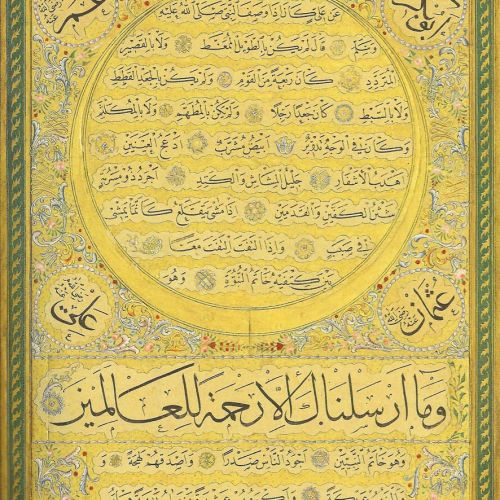 عمر
عن علي كان إذا وصف النبي صلى الله عليه
وسلم قال لم يكن بالطويل الممغط ولا بالقصير
المتردد كان ربعة من القوم ولم يكن بالجعد القطط
ولا بالسبط كان جعدا رجلا ولم يكن بالمطهم ولا بالمكلثم
وكان في الوجه تدوير ابيض مشرب ادعج العينين
اهدب الاشفار جليل المشاش والكتد اجرد ذو مسربة
شثن الكفين والقدمين اذا مشى يتقلع كانما يمشي
في صبب واذا التفت التفت معا
بين كتفيه خاتم النبوة وهو
عثمان رضي الله عنه
علي
وما ارسلناك الا رحمة للعالمين
وهو خاتم النبيين اجود الناس صدرا واصدقهم لهجة و